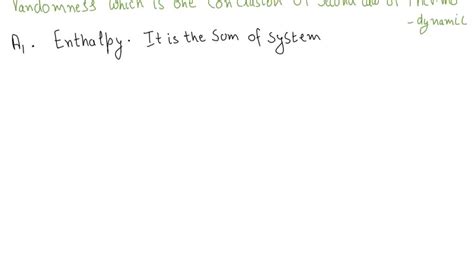 randomness which is one conclusion of second law of Thermo
-dynamic
A1. Enthalpy. It is the sum of system